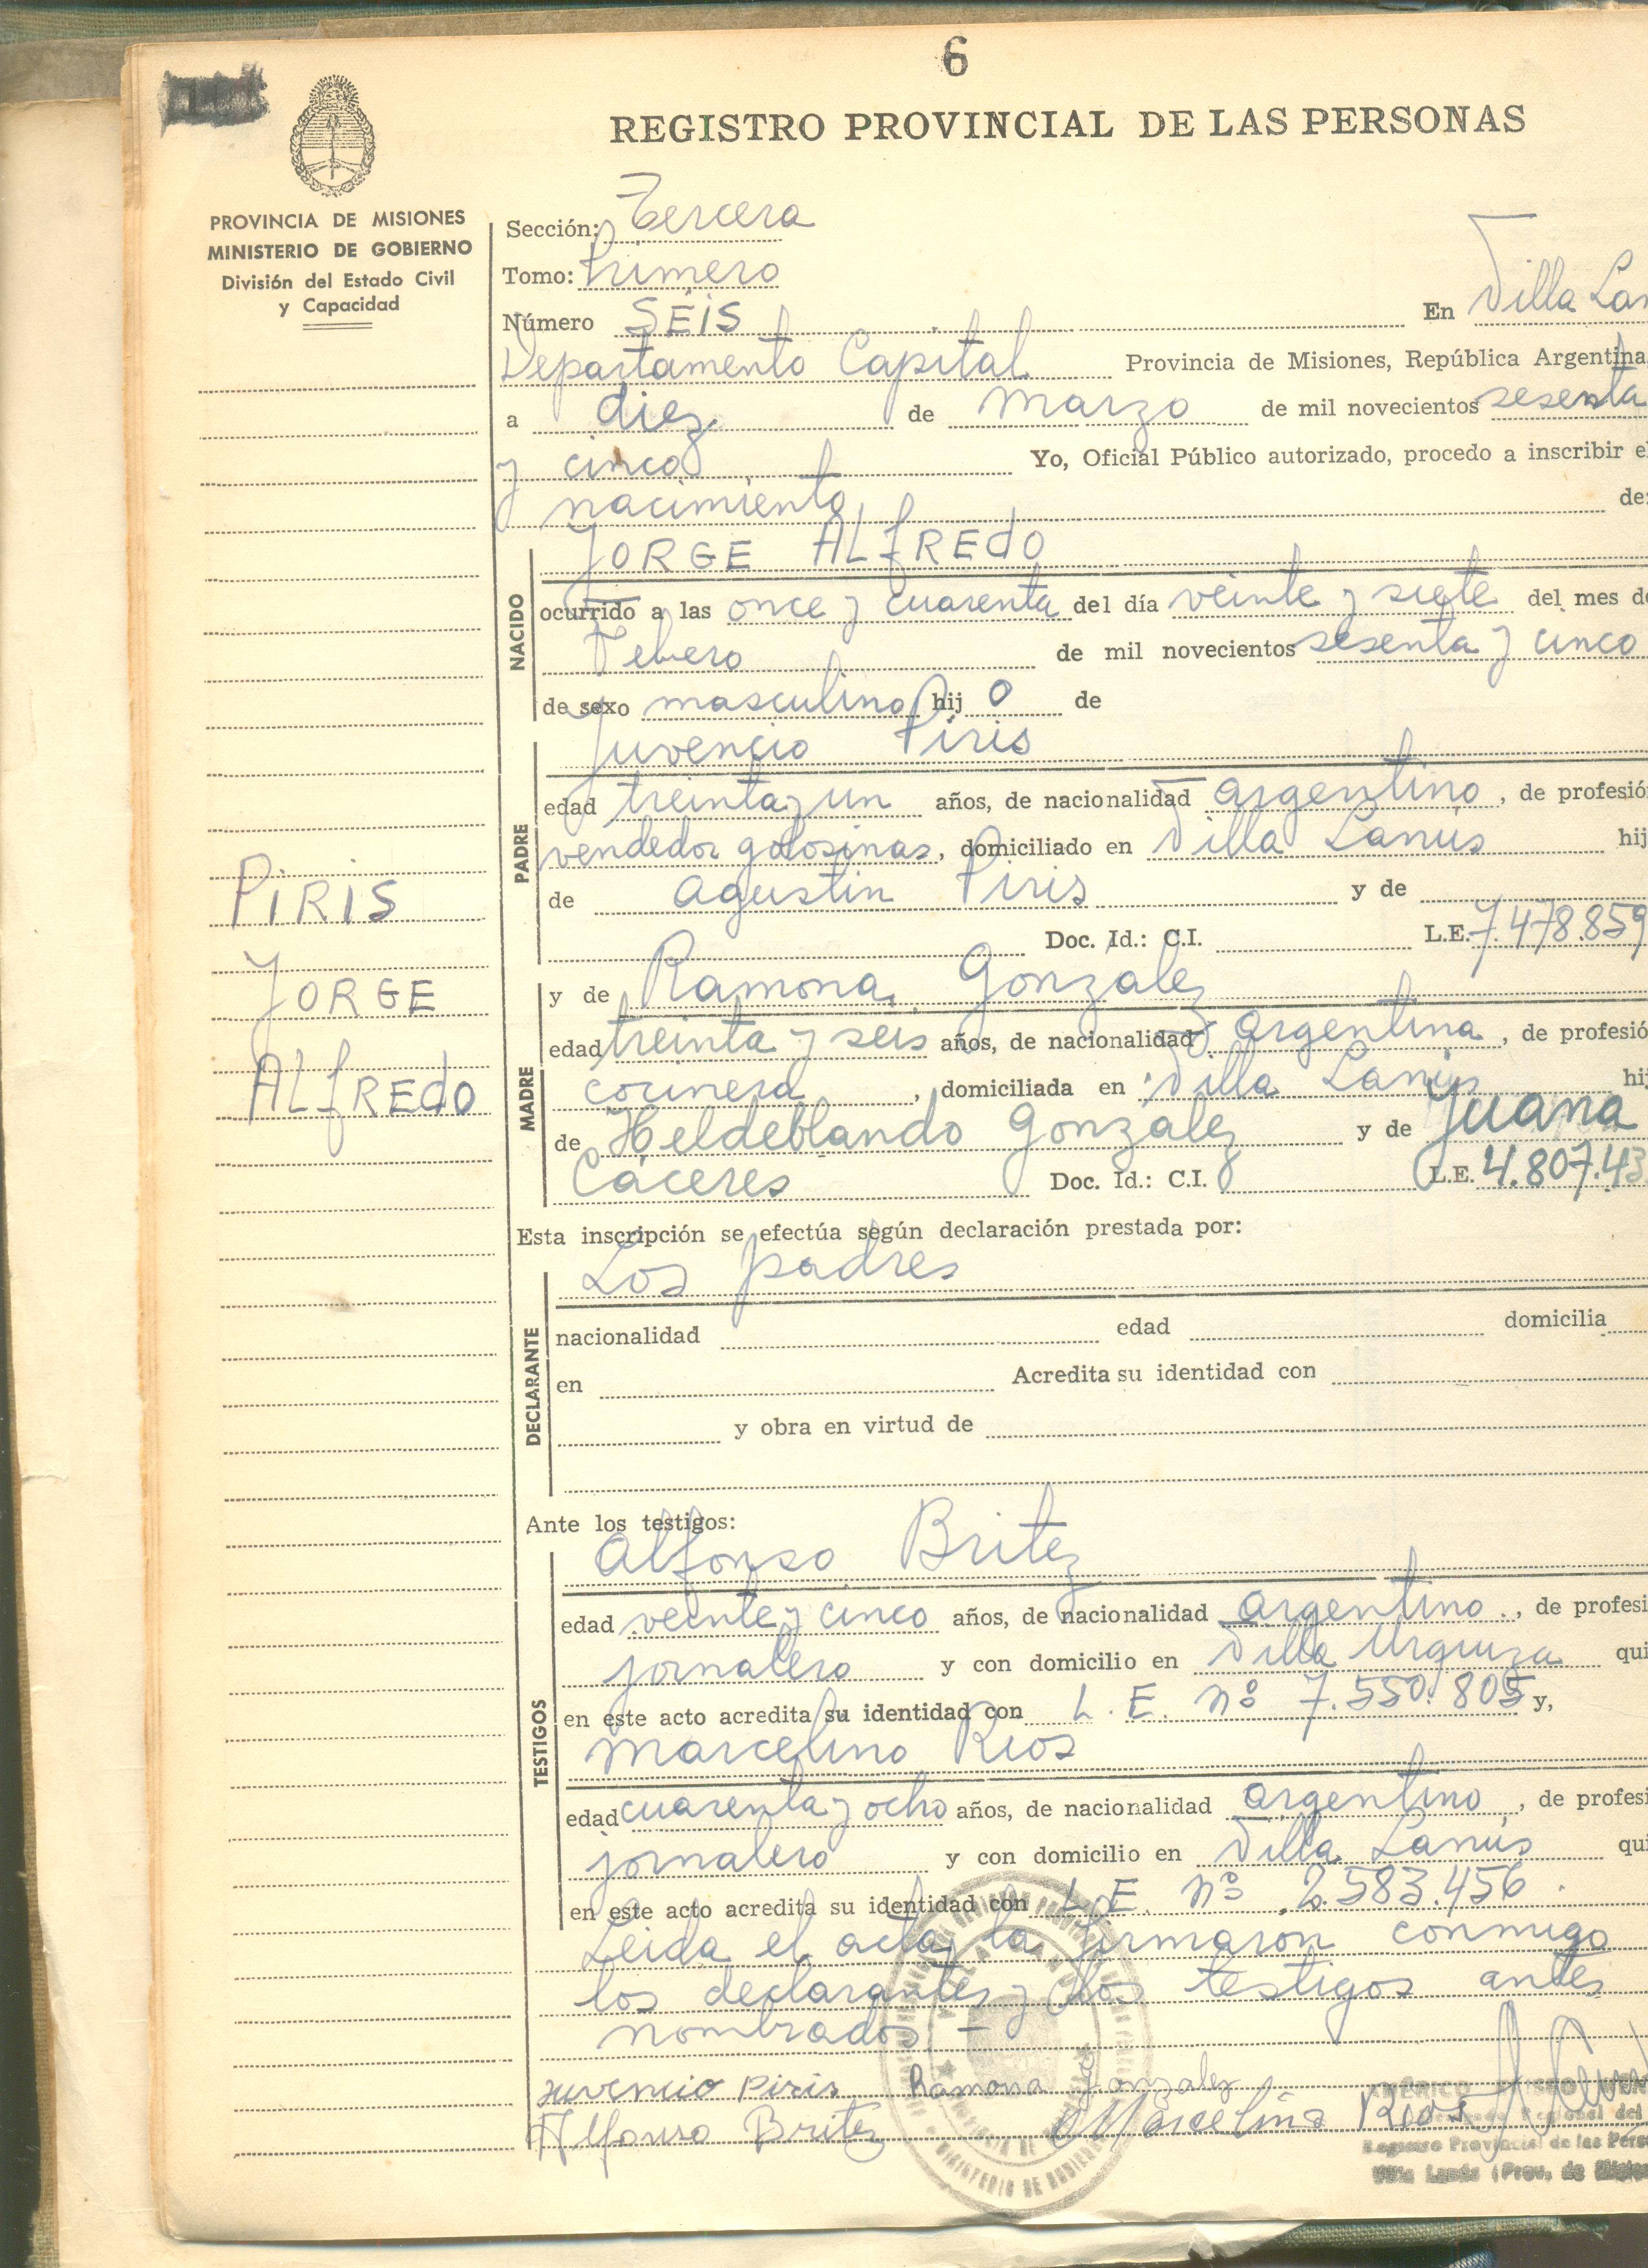 6
REGISTRO PROVINCIAL DE LAS PERSONAS
PROVINCIA DE MISIONES
MINISTERIO DE GOBIERNO
División del Estado Civil
y Capacidad
Sección: Tercera
Tomo: Primero
Número SEiS En Villa Lan
Departamento Capital Provincia de Misiones, República Argentina
a diez de marzo de mil novecientos sesenta
y cinco Yo, Oficial Público autorizado, procedo a inscribir el
nacimiento de:
JORGE ALfREdO
NACIDO
ocurrido a las once y cuarenta del día veinte y siete del mes de
Febero de mil novecientos sesenta y cinco
de sexo masculino hij o de
Juvencio Piris
PADRE
edad treinta y un años, de nacionalidad argentino, de profesió
vendedor golosinas, domiciliado en Villa Lanús hij
de Agustin Piris y de
Doc. Id.: C.I. L.E. 7.478.859
y de Ramona Gonzalez
MADRE
edad treinta y seis años, de nacionalidad argentina, de profesió
cocinera, domiciliada en Villa Lanús hij
de Heldeblando Gonzalez y de Juana
Cáceres Doc. Id.: C.I. L.E. 4.807.43
PiRiS
JORGE
ALfREdO
Esta inscripción se efectúa según declaración prestada por:
Los padres
DECLARANTE
nacionalidad edad domicilia
en Acredita su identidad con
y obra en virtud de
Ante los testigos:
Alfonso Britez
TESTIGOS
edad veinte y cinco años, de nacionalidad argentino, de profesi
jornalero y con domicilio en Villa Urquiza qui
en este acto acredita su identidad con L.E. nº 7.550.805 y,
Marcelino Rios
edad cuarenta y ocho años, de nacionalidad argentino, de profesi
jornalero y con domicilio en Villa Lanús qui
en este acto acredita su identidad con L.E. nº 2.583.456.
Leida el acta, la firmaron conmigo
los declarantes y los testigos antes
nombrados.-
Juvencio Piris Ramona Gonzalez
Alfonso Britez Marcelino Rios
Registro Provincial de las Perso
Villa Lanús (Prov. de Misiones